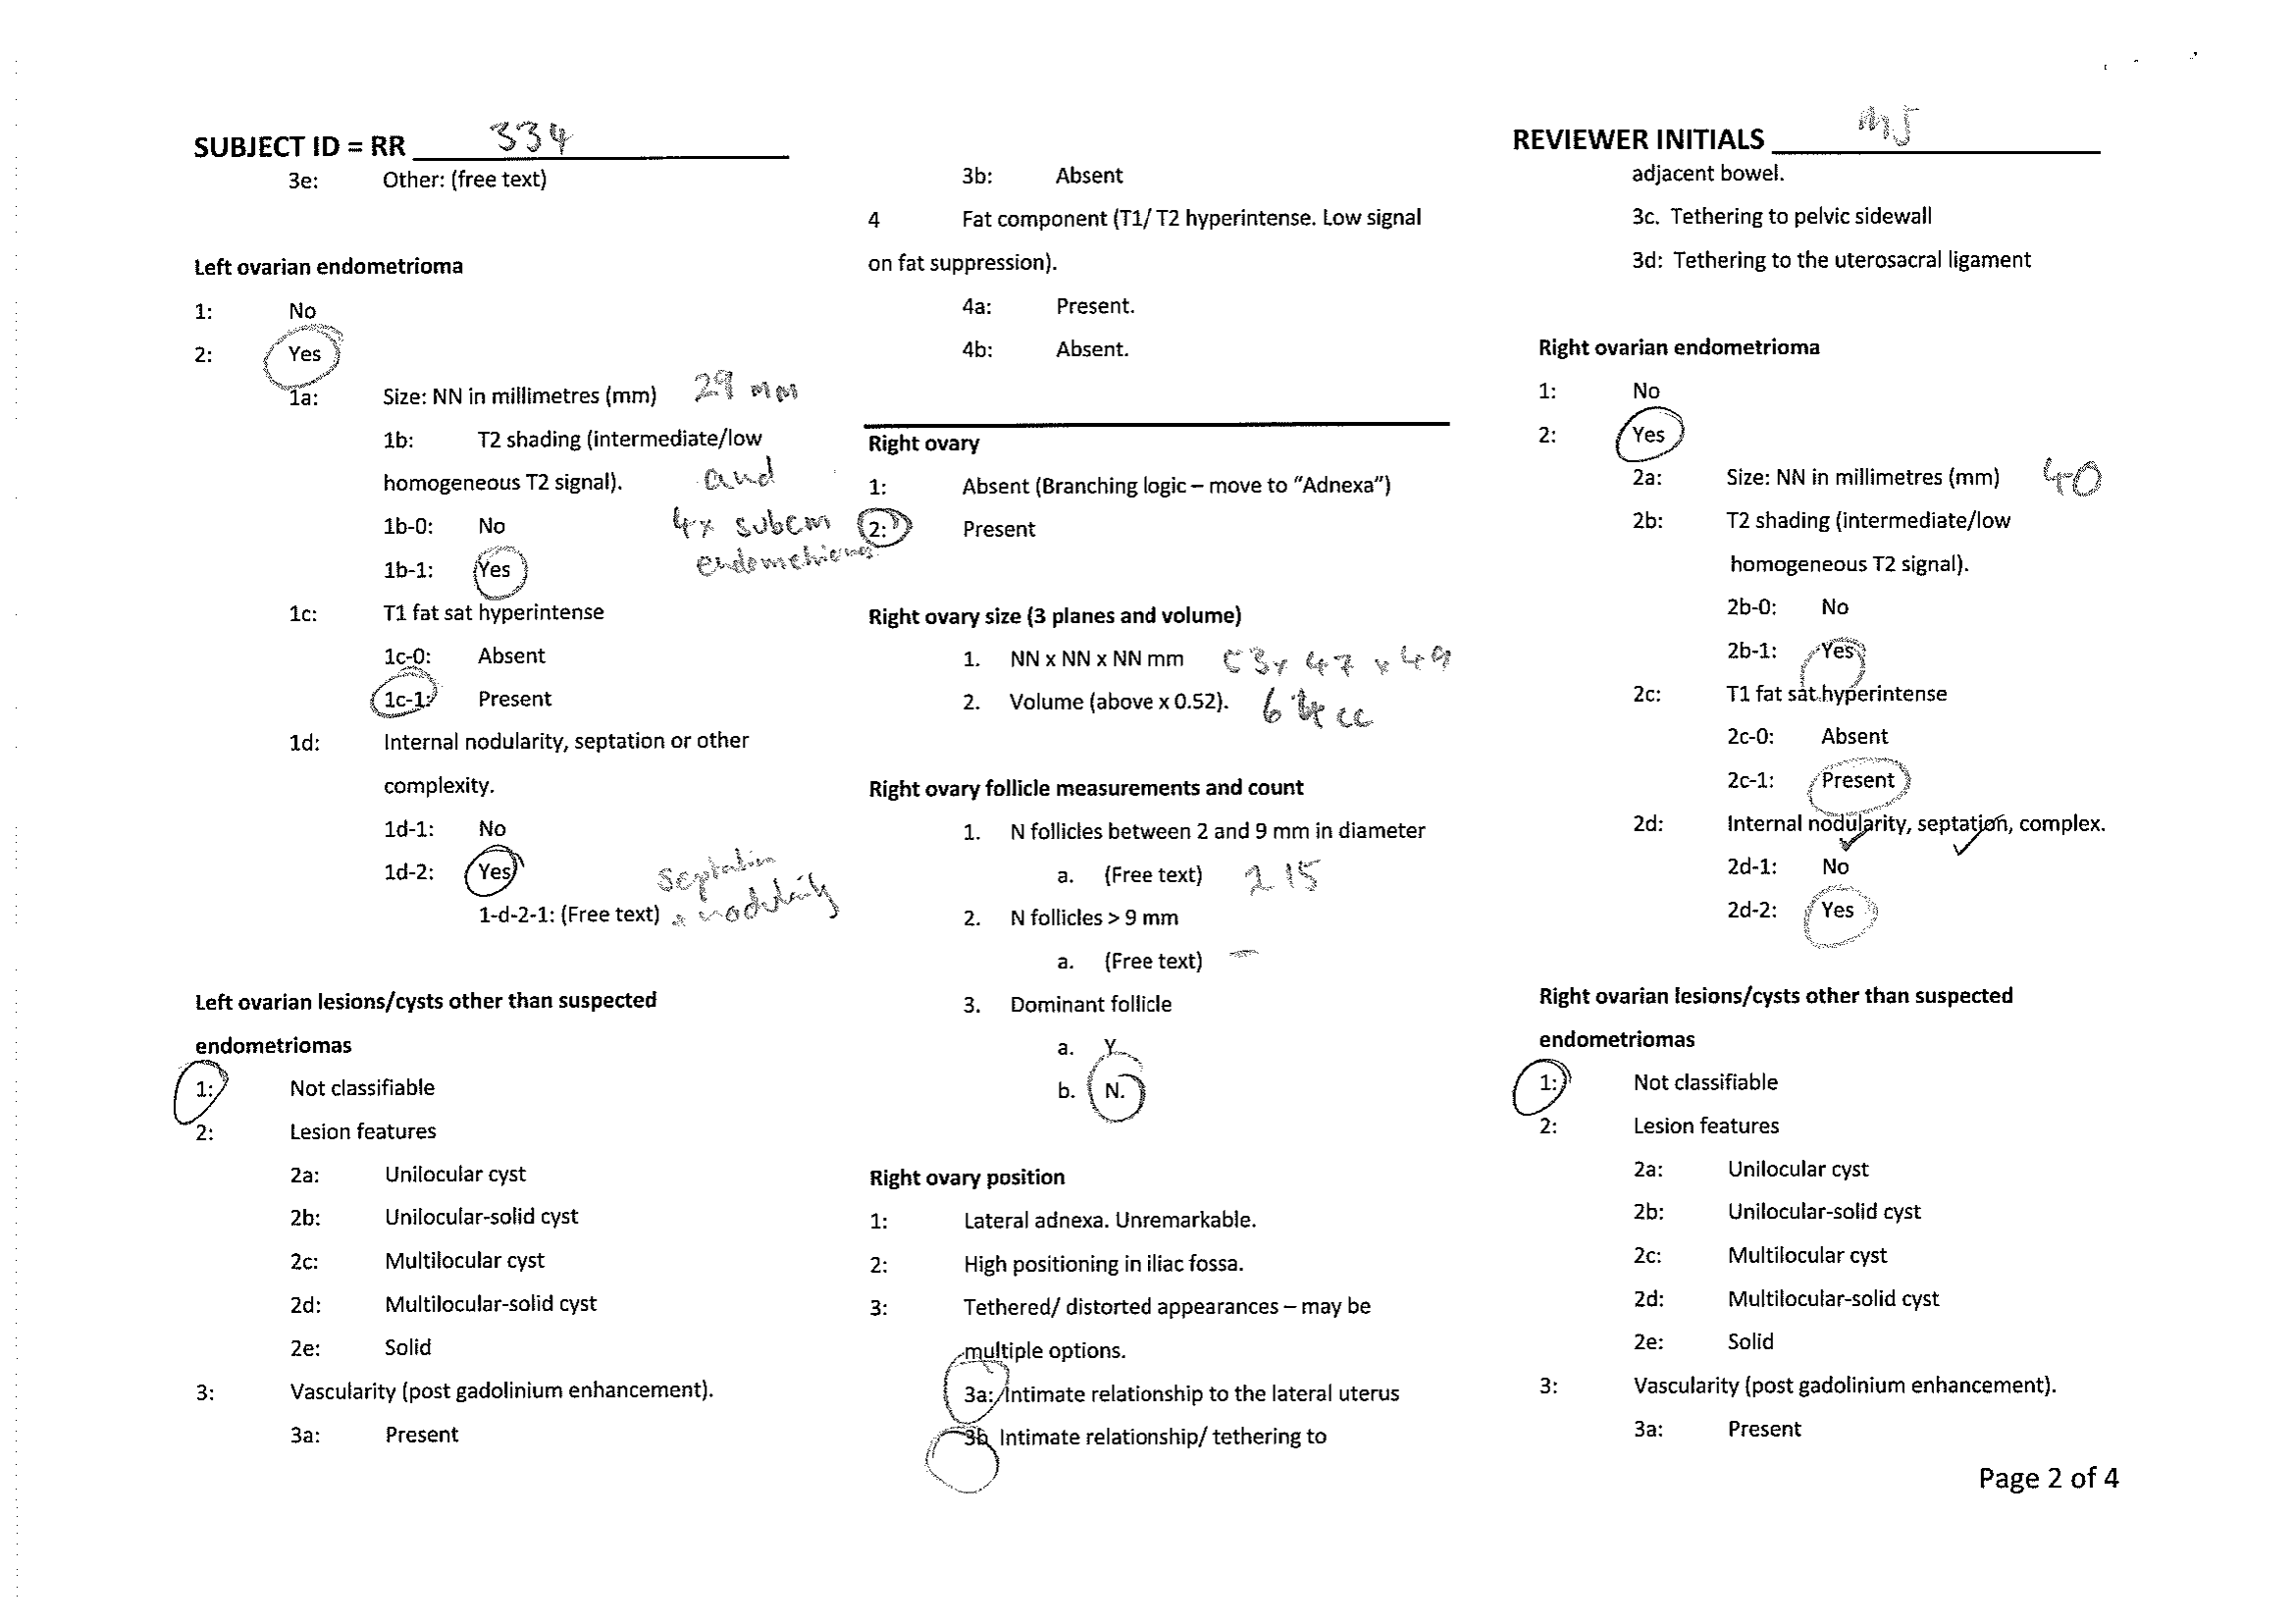 SUBJECT ID = RR 334
3e: Other: (free text)
Left ovarian endometrioma
1: No
2: Yes
1a: Size: NN in millimetres (mm) 29 mm
1b: T2 shading (intermediate/low
homogeneous T2 signal). and
1b-0: No 4x subcm
1b-1: Yes endometriomas
1c: T1 fat sat hyperintense
1c-0: Absent
1c-1: Present
1d: Internal nodularity, septation or other
complexity.
1d-1: No
1d-2: Yes septation
1-d-2-1: (Free text) + nodularity
Left ovarian lesions/cysts other than suspected
endometriomas
1: Not classifiable
2: Lesion features
2a: Unilocular cyst
2b: Unilocular-solid cyst
2c: Multilocular cyst
2d: Multilocular-solid cyst
2e: Solid
3: Vascularity (post gadolinium enhancement).
3a: Present
3b: Absent
4 Fat component (T1/ T2 hyperintense. Low signal
on fat suppression).
4a: Present.
4b: Absent.
Right ovary
1: Absent (Branching logic – move to “Adnexa”)
2: Present
Right ovary size (3 planes and volume)
1. NN x NN x NN mm 53x 47 x 49
2. Volume (above x 0.52). 64 cc
Right ovary follicle measurements and count
1. N follicles between 2 and 9 mm in diameter
a. (Free text) 15
2. N follicles > 9 mm
a. (Free text) –
3. Dominant follicle
a. Y
b. N.
Right ovary position
1: Lateral adnexa. Unremarkable.
2: High positioning in iliac fossa.
3: Tethered/ distorted appearances – may be
multiple options.
3a: Intimate relationship to the lateral uterus
3b Intimate relationship/ tethering to
REVIEWER INITIALS MJ
adjacent bowel.
3c. Tethering to pelvic sidewall
3d: Tethering to the uterosacral ligament
Right ovarian endometrioma
1: No
2: Yes
2a: Size: NN in millimetres (mm) 40
2b: T2 shading (intermediate/low
homogeneous T2 signal).
2b-0: No
2b-1: Yes
2c: T1 fat sat hyperintense
2c-0: Absent
2c-1: Present
2d: Internal nodularity, septation, complex.
2d-1: No
2d-2: Yes
Right ovarian lesions/cysts other than suspected
endometriomas
1: Not classifiable
2: Lesion features
2a: Unilocular cyst
2b: Unilocular-solid cyst
2c: Multilocular cyst
2d: Multilocular-solid cyst
2e: Solid
3: Vascularity (post gadolinium enhancement).
3a: Present
Page 2 of 4